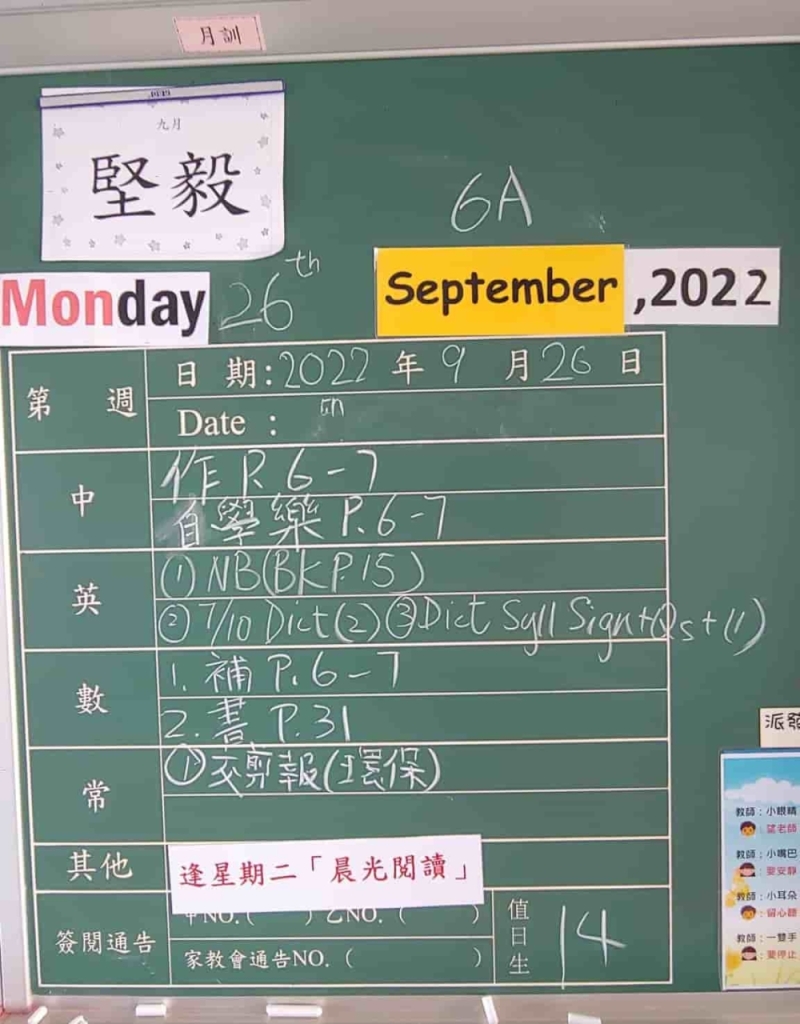 月訓
九月
堅毅
6A
Monday 26th September ,2022
第 週
日 期:2022 年 9 月 26 日
Date :
中
作 P. 6-7
自學樂 P.6-7
英
① NB(BK P.15)
② 7/10 Dict(2) ③Dict Syll Sign+Qs+(1)
數
1. 補 P. 6-7
2. 書 P.31
常
① 交剪報(環保)
其他
逢星期二「晨光閱讀」
簽閱通告
甲NO. ( ) 乙NO. ( )
家教會通告NO. ( )
值日生
14
派發
教師：小眼睛
望老師
教師：小嘴巴
要安靜
教師：小耳朵
留心聽
教師：一雙手
要停止